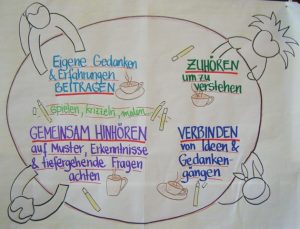 Eigene Gedanken
& Erfahrungen
BEITRAGEN
ZUHÖREN
um zu
verstehen
spielen, kritzeln, malen
GEMEINSAM HINHÖREN
auf Muster, Erkenntnisse
& tiefergehende Fragen
achten
VERBINDEN
von Ideen &
Gedanken-
gängen